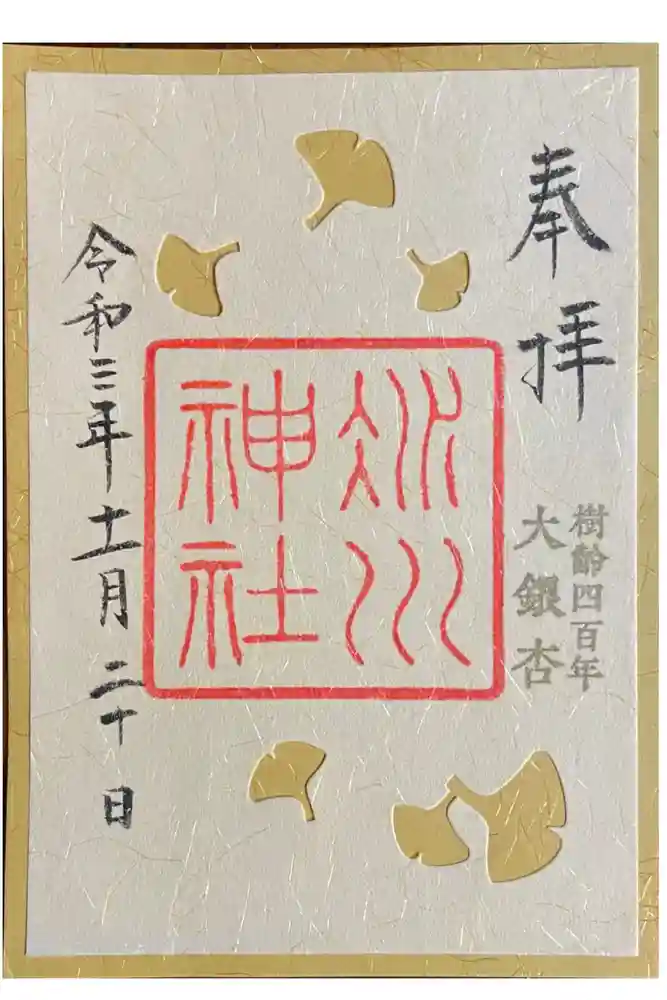 奉拝
樹齢四百年
大銀杏
氷川
神社
令和三年十一月二十日